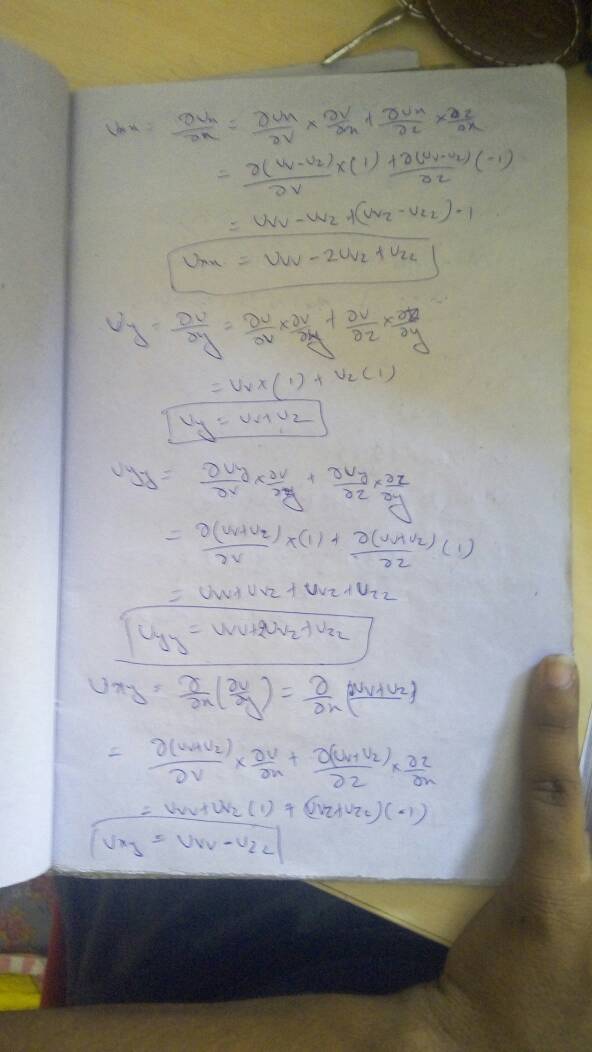 Uxx = ∂Ux/∂x = ∂Ux/∂v × ∂v/∂x + ∂Ux/∂z × ∂z/∂x
= ∂(Uv-Uz)/∂v × (1) + ∂(Uv-Uz)/∂z (-1)
= Uvv - Uvz + (Uvz - Uzz) -1
Uxx = Uvv - 2Uvz + Uzz
Uy = ∂U/∂y = ∂U/∂v × ∂v/∂y + ∂U/∂z × ∂z/∂y
= Uv × (1) + Uz (1)
Uy = Uv + Uz
Uyy = ∂Uy/∂v × ∂v/∂y + ∂Uy/∂z × ∂z/∂y
= ∂(Uv+Uz)/∂v × (1) + ∂(Uv+Uz)/∂z (1)
= Uvv + Uvz + Uvz + Uzz
Uyy = Uvv + 2Uvz + Uzz
Uxy = ∂/∂x (∂U/∂y) = ∂/∂x (Uv+Uz)
= ∂(Uv+Uz)/∂v × ∂v/∂x + ∂(Uv+Uz)/∂z × ∂z/∂x
= Uvv + Uvz (1) + (Uzv + Uzz) (-1)
Uxy = Uvv - Uzz